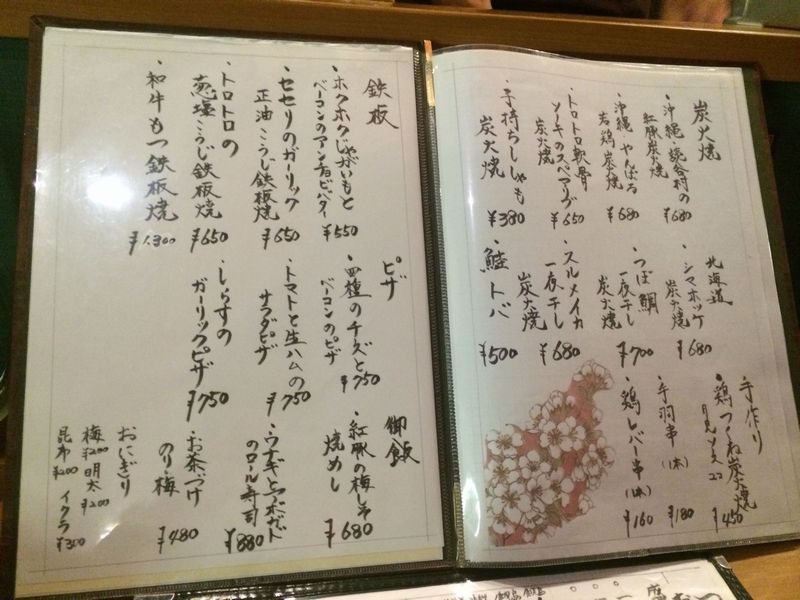 炭火焼
・沖縄・読谷村の
紅豚炭火焼
¥680
・沖縄やんばる
若鶏炭火焼
¥680
・トロトロ軟骨
ソーキのスペアリブ
炭火焼
¥650
・子持ちししゃも
炭火焼
¥380
北海道
・シマホッケ
炭火焼
¥680
・つぼ鯛
一夜干し
炭火焼
¥700
・スルメイカ
一夜干し
炭火焼
¥680
・鮭トバ
¥500
手作り
・鶏つくね炭火焼
月見ソース
¥450
・手羽串
(1本)
¥180
・鶏レバー串
(1本)
¥160
鉄板
・ホクホクじゃがいもと
ベーコンのアンチョビバター
¥550
・セセリのガーリック
正油こうじ鉄板焼
¥650
・トロトロの
葱塩こうじ鉄板焼
¥650
・和牛もつ鉄板焼
¥1,300
ピザ
・四種のチーズと
ベーコンのピザ
¥750
・トマトと生ハムの
サラダピザ
¥750
・しらすの
ガーリックピザ
¥750
御飯
・紅豚の梅しそ
焼めし
¥680
・ウナギとアボガド
のロール寿司
¥880
・お茶づけ
のり 梅
¥480
おにぎり
梅 ¥200 明太 ¥200
昆布 ¥200 イクラ ¥300